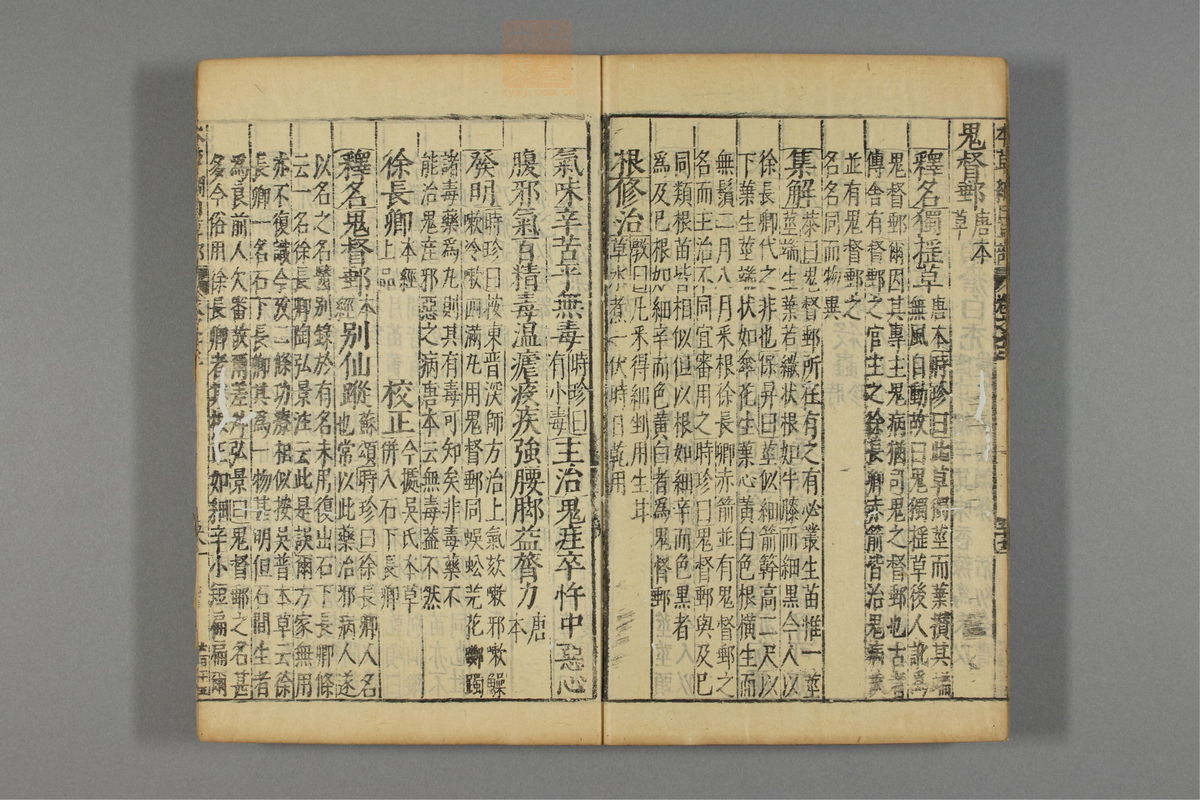 鬼督郵唐本草
釋名獨搖草唐本時珍曰此草獨莖而葉攢其端
無風自動故曰鬼獨搖草後人訛爲
鬼督郵爾因其專主鬼病猶司鬼之督郵也古者
傳舍有督郵之官主之徐長卿赤箭皆治鬼病
並有鬼督郵之
名名同而物異
集解恭曰鬼督郵所在有之有必叢生苗惟一莖
莖端生葉若繖狀根如牛膝而細黑今人以
徐長卿代之非也保昇曰莖似細箭簳高二尺以
下葉生莖端狀如傘花生葉心黃白色根橫生而
無鬚二月八月采根徐長卿赤箭並有鬼督郵之
名而主治不同宜審用之時珍曰鬼督郵與及已
同類根苗皆相似但以根如細辛而色黑者
爲及已根如細辛而色黃白者爲鬼督郵
根修治斆曰凡采得細剉用生甘
草水煮一伏時日乾用
氣味辛苦平無毒時珍曰有小毒主治鬼疰卒忤中惡心
腹邪氣百精毒温瘧疫疾強腰脚益膂力唐本
發明時珍曰按東晉深師方治上氣欬嗽邪嗽燥
嗽冷嗽四滿丸用鬼督郵同蜈蚣芫花躑躅
諸毒藥爲丸則其有毒可知矣非毒藥不
能治鬼疰邪惡之病唐本云無毒蓋不然
徐長卿本經上品 校正今據吳氏本草併入石下長卿
釋名鬼督郵本經别仙蹤蘇頌時珍曰徐長卿人名
也常以此藥治邪病人遂
以名之名醫别錄於有名未用復出石下長卿條
云一名徐長卿陶弘景注云此是誤爾方家無用
亦不復識今攷二條功療相似按吳普本草云徐
長卿一名石下長卿其爲一物甚明但石間生者
爲良前人欠審故爾差舛弘景曰鬼督郵之名甚
多今俗用徐長卿者其根正如細辛小短扁扁爾